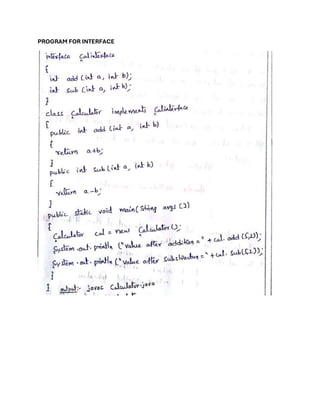 PROGRAM FOR INTERFACE
interface Calinterface
{
int add (int a, int b);
int sub (int a, int b);
}
class Calculator implements Calinterface
{
public int add (int a, int b)
{
return a+b;
}
public int sub (int a, int b)
{
return a-b;
}
public static void main (String args [])
{
Calculator cal = new Calculator ();
System.out.println ("value after addition = " + cal. add (5,2));
System.out.println ("value after Substraction = " + cal. sub(5,2));
}
} output:- javac Calculator.java